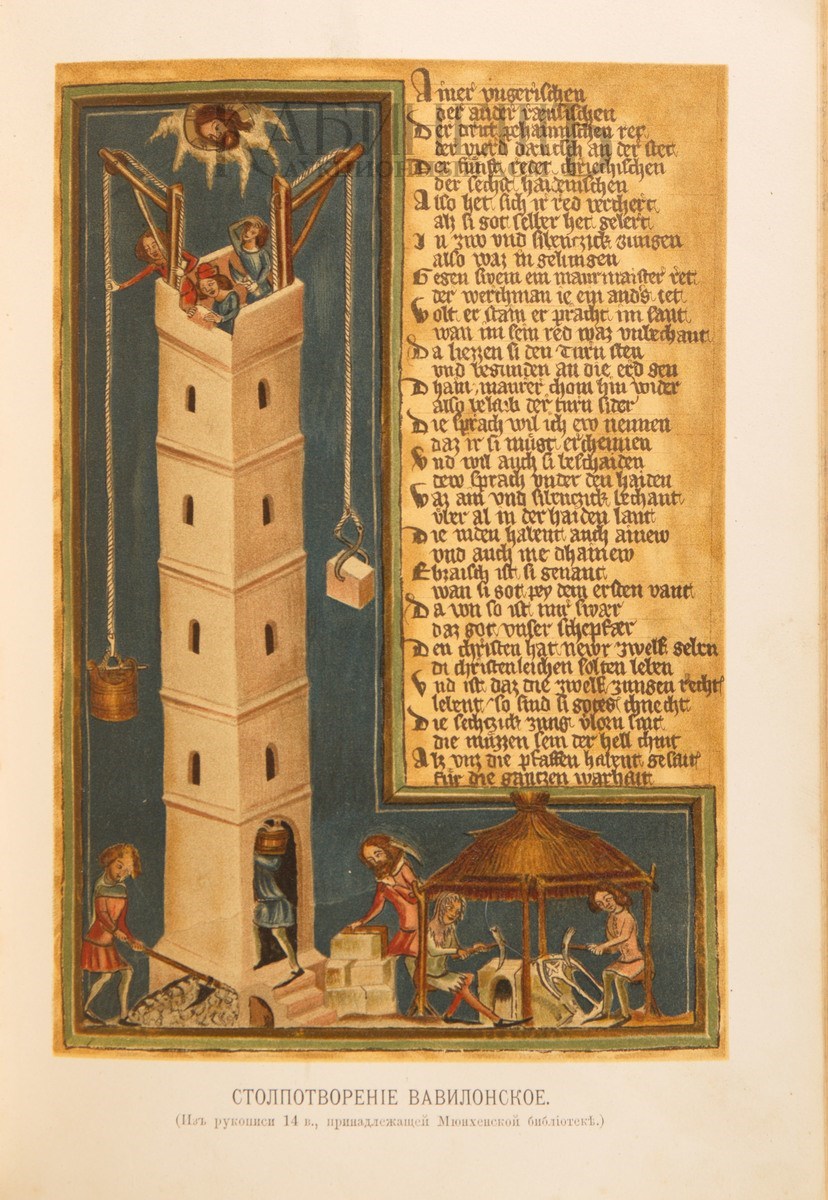 Ainer vngerischen
der ander ræusischen
Der drit pehaimischen ret
der vierd dæutsch an der stet
Der fünft redet chriechischen
der sechst haidenischen
Also het sich ir red verchert
als si got selber het gelert
In zwo vnd sibenczick zungen
also waz in gelungen
Gegen swem ein maurmaister ret
der werchman ie ein anders tet
Wolt er stain er pracht im sant
wan im sein red waz vnbechant
Da liezzen si den turn sten
vnd begunden an die erd gen
Dhain maurer chom hin wider
also belaib der turn sider
Die sprach wil ich ew nennen
daz ir si mügt erchennen
Vnd wil auch si beschaiden
dew sprach vnder den haiden
Waz ain vnd sibenczick bechant
vber al in der haiden lant
Die iuden habent auch ainew
vnd auch nie dhainew
Ebraisch ist si genant
wan si got pey dem ersten vant
Da von so ist mir swær
daz got vnser schepfær
Den christen hat newr zwelf geben
di christenleichen solten leben
Vnd ist daz die zwelf zungen recht
lebent so sind si gotes chnecht
Die sechczick zung vlorn sint
die müzzen sein der hell chint
Alz vnz die pfaffen habent gesait
für die gantzen warhait
СТОЛПОТВОРЕНІЕ ВАВИЛОНСКОЕ.
(Изъ рукописи 14 в., принадлежащей Мюнхенской библіотекѣ.)